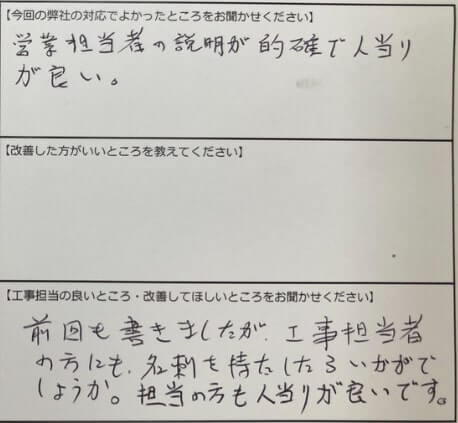 【今回の弊社の対応でよかったところをお聞かせください】
営業担当者の説明が的確で人当り
が良い。
【改善した方がいいところを教えてください】
【工事担当の良いところ・改善してほしいところをお聞かせください】
前回も書きましたが、工事担当者
の方にも、名刺を持たしたらいかがで
しょうか。担当の方も人当りが良いです。